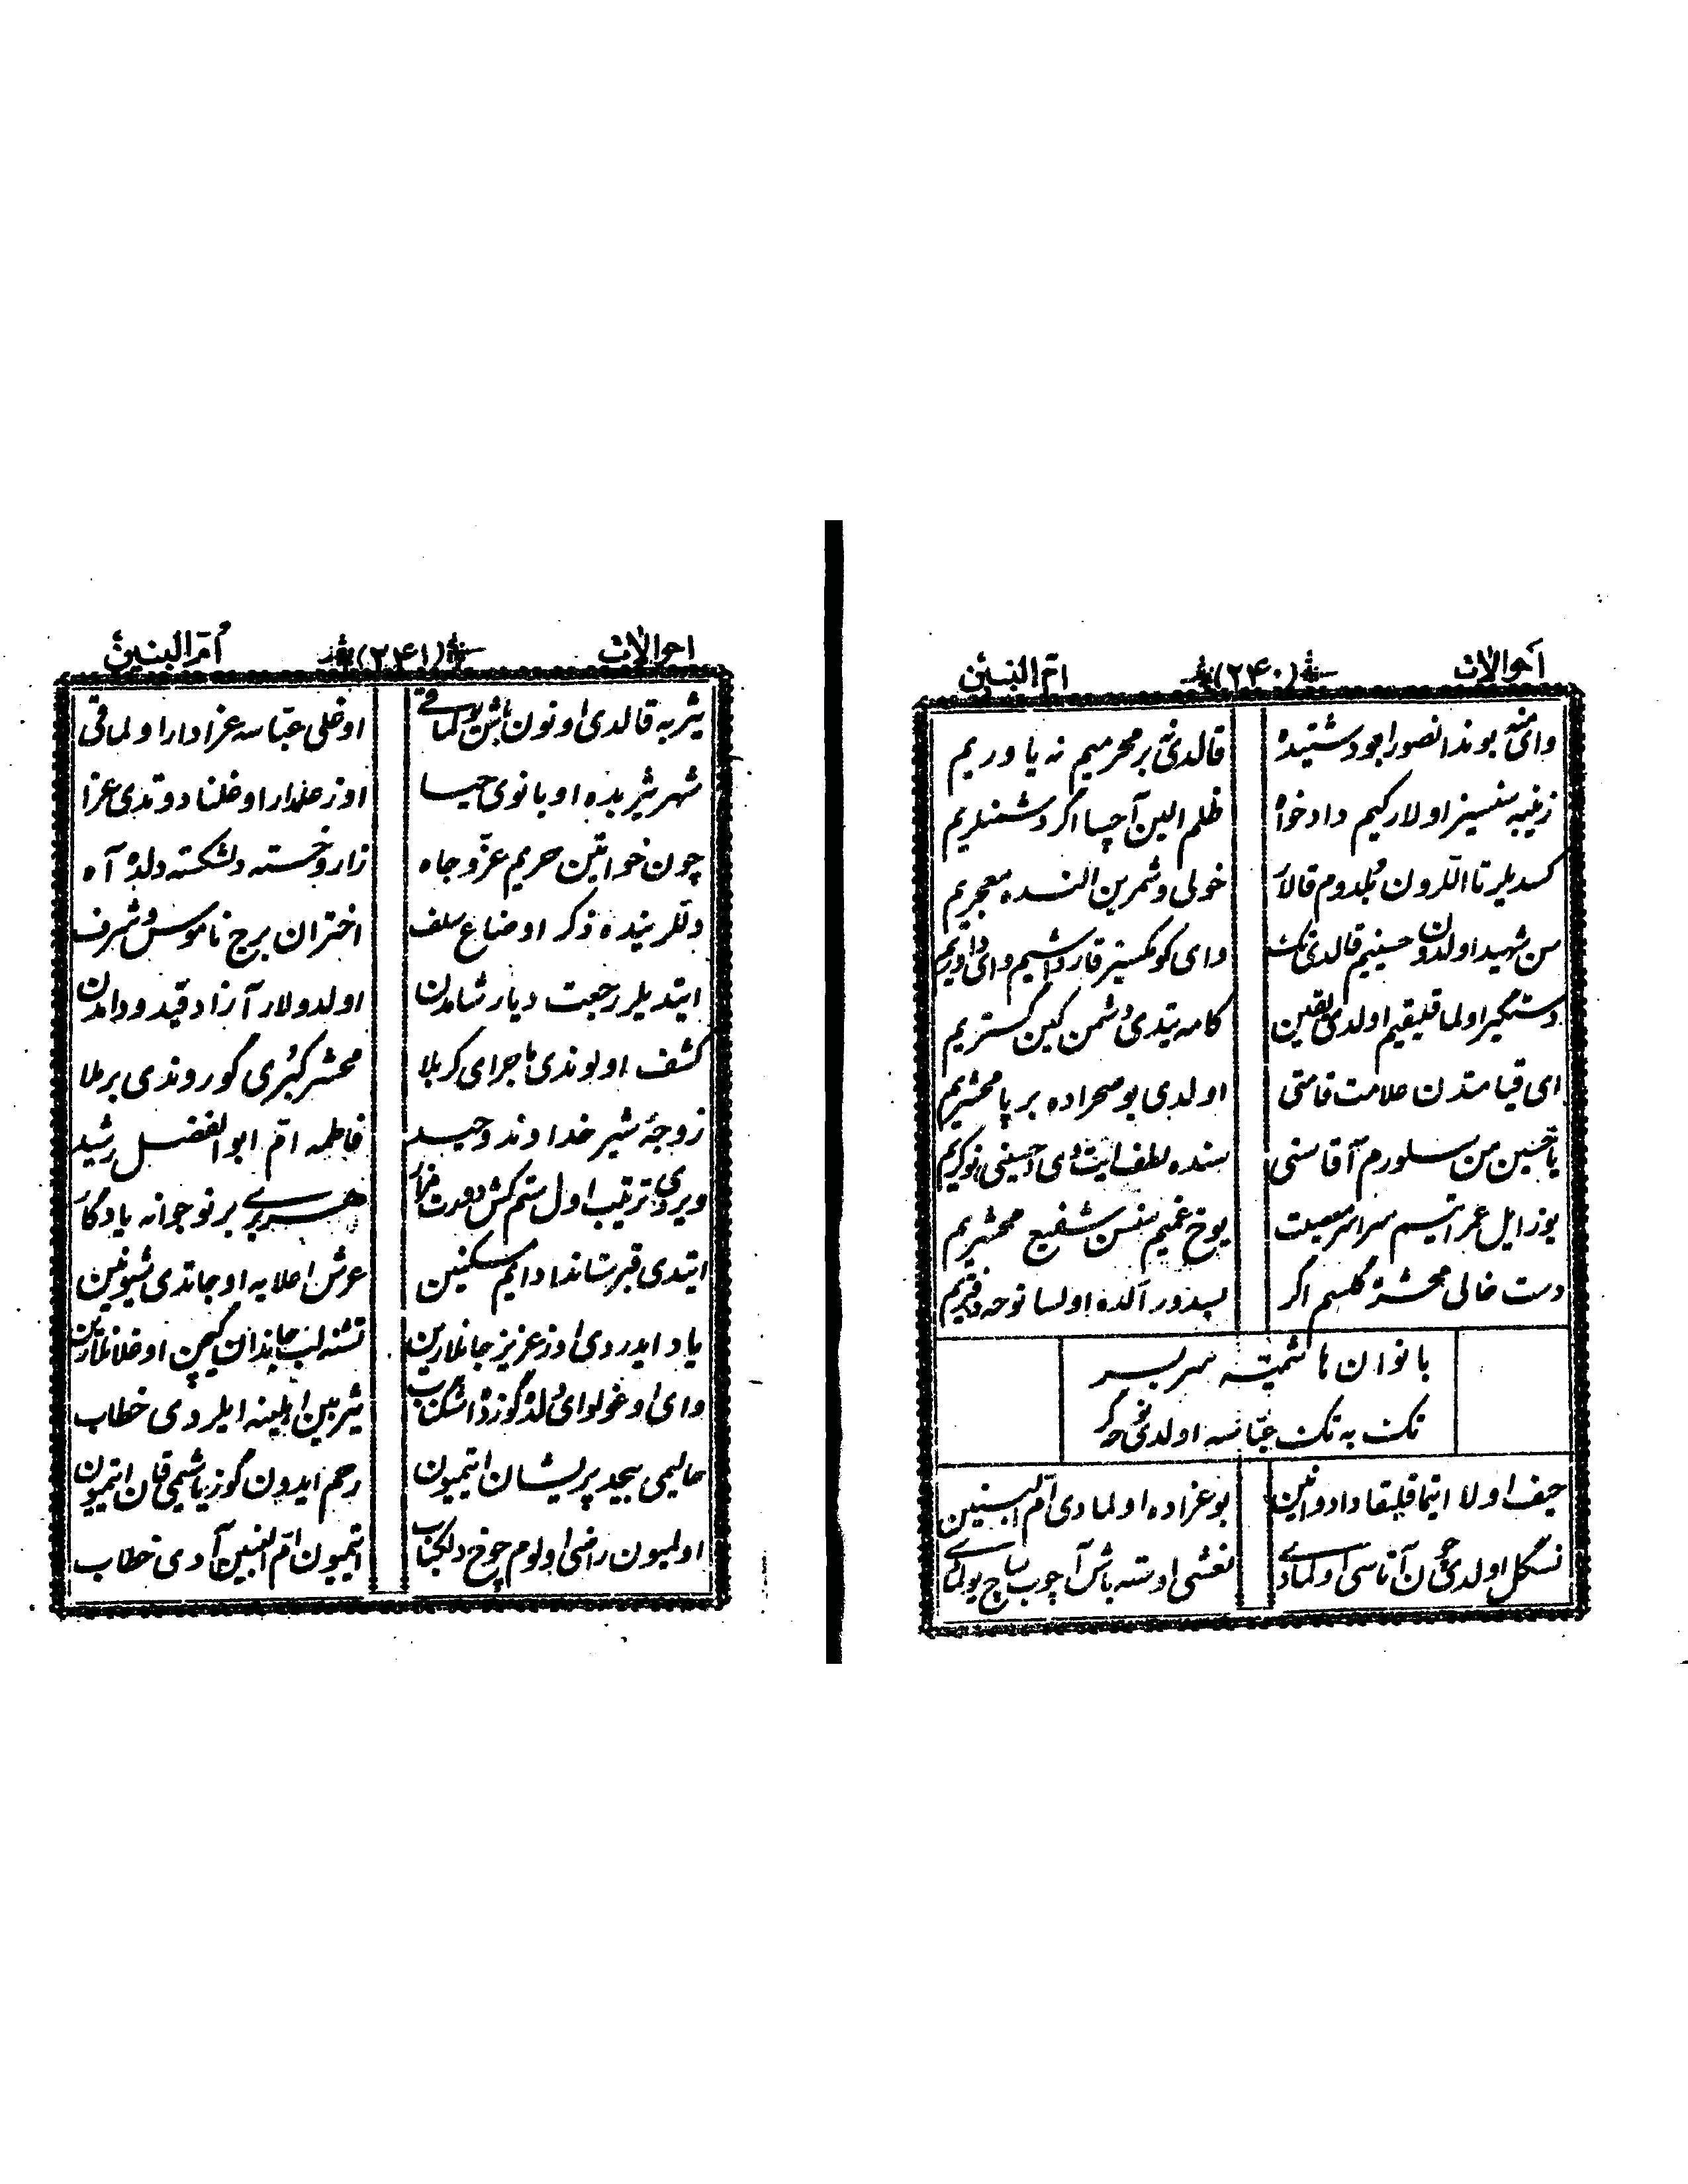 احوالات (۲۴۰) امّ البنین
وای بوندا نصور ایجود قالدی نه بر محرمیم نه یاوریم
زینبه سنسیز اولار کیم دادخواه ظلم الین آچسا اگر دشمنلریم
کسدیلر تا اللرون بلدوم قالار خولی و شمرین النده معجریم
سن شهید اولدون حسینیم قالدی تک وای کومکسیز قارداشیم وای داوریم
دستگیر اولماقلیقیم اولدی یقین کامه یتدی دشمن کین گستریم
ای قیامتدن علامت قامتی اولدی بو صحراده بر پا محشریم
یا حسین من سلورم آقا سنی سنده لطف ایت دی حسینی نوکریم
یوز ایل عمر ایتسم سراسر معصیت یوخ غمیم سنسن شفیع محشریم
دست خالی محشره گلسم اگر بسدور آلده اولسا نوحه دفتریم
بانوان هاشمیّه سر بسر
تک به تک عبّاسه اولدی نوحه گر
حیف اولا ایتماقلیقا داد و انین بو عزاده اولمادی امّ البنین
نسگل اولدی چون آناسی اولمادی نعشی اوسته باش آچوب ساچ یولمادی
احوالات (۲۴۱) اُمّ البنین
یثربه قالدی اونون باش یولماقی اوغلی عبّاسه عزادار اولماقی
شهر یثربده او بانوی حیا اوز علمدار اوغلنا دوتدی عزا
چون خواتین حریم عزّ و جاه زار و خسته دلشکته دلده آه
دللرینده ذکر اوضاع سلف اختران برج ناموس و شرف
ایتدیلر رجعت دیار شامدن اولدولار آزاد قید و دامدن
کشف اولوندی ماجرای کربلا محشر کبُری گوروندی برملا
زوجهٔ شیر خداوند وحید فاطمه امّ ابوالفضل رشید
ویردی ترتیب اول ستم کش دورت مزار هر بری بر نوجوانه یادگار
ایتدی قبرستاندا دایم سکنین عرش اعلایه اوجاتدی شیونین
یاد ایدردی اوز عزیز جانلارین تشنه لب جاندان گیچن اوغلانلارین
وای اوغول وای دلده گوزده اشک ناب یثربین اهلینه ایلردی خطاب
حالیمی بیحد پریشان ایتمیون رحم ایدون گوز یاشیمی قان ایتمیون
اولمیون راضی اولوم چوخ دلکباب ایتمیون امّ البنین آدی خطاب